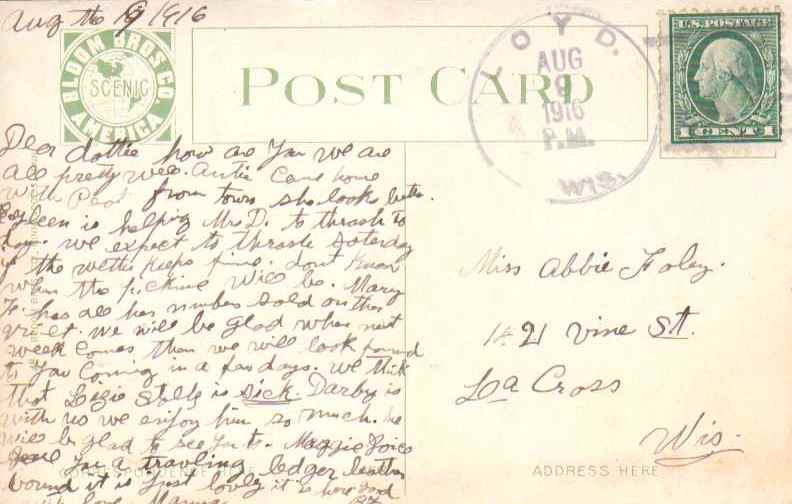 Aug the 9 1916
BLOOM BROS CO.
SCENIC
AMERICA
POST CARD
LOYD.
AUG
9
1916
P.M.
WIS.
U.S. POSTAGE
1 CENT 1
Dear dottie how are You we are
all pretty well. Antie Came home
with Paa from town she looks better.
is helping Mrs D. to thrash to
day. we expect to thrash Saterday
if the wether Keeps fine. dont Know
when the picking will be. Mary
F. has all her number sold on the
. we will be glad when next
week Comes then we will look forard
to You Coming in a few days. we think
that Lizie is Sick. Darby is
with us we enjoy him so much. he
will be glad to see You to. Maggie
You a travling ledger leather
bound it is Just lovly it is
with love
Miss Abbie Foley.
1421 Vine St.
La Cross
Wis.
CORRESPONDENCE HERE
ADDRESS HERE